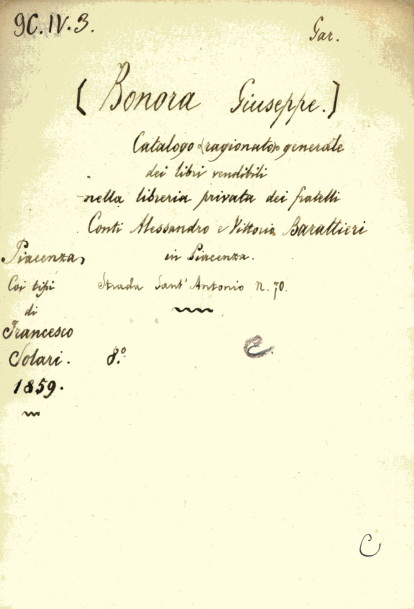 9C.IV.3.
Gar.
[Bonora Giuseppe.]
Catalogo (ragionato) generale
dei libri vendibili
nella libreria privata dei fratelli
Conti Alessandro e Vittorio Barattieri
in Piacenza.
Strada Sant' Antonio N. 70.
Piacenza,
Coi tipi
di
Francesco
Solari.
1859.
8.º
C
C